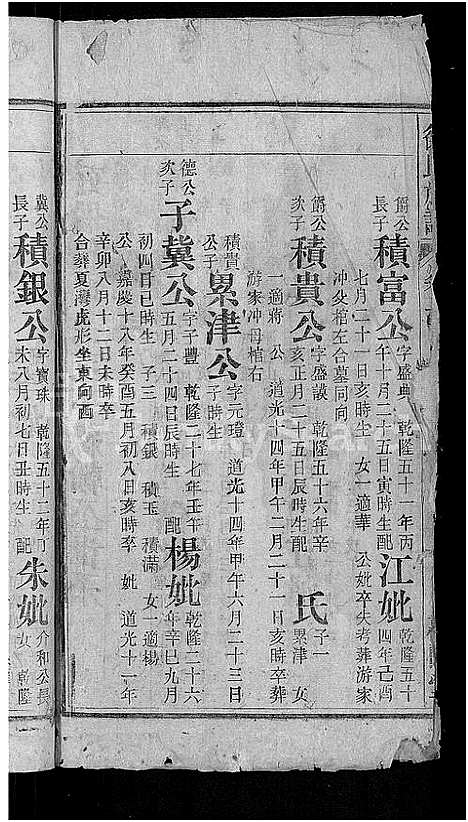 爵公長子積富公字盛典 乾隆五十一年丙午十月二十五日寅時生配江妣乾隆五十四年己酉
七月二十一日亥時生 女一適華 公妣卒失考葬游家
冲父棺左合墓同向
爵公次子積貴公字盛謨 乾隆五十六年辛亥正月二十五日辰時生配 氏子一累津 女
一適蔣 公 道光十四年甲午二月二十一日亥時卒葬
游家冲母棺右
積貴公子累津公字元瓚 道光十四年甲午六月二十三日子時生
德公次子子冀公字子豐 乾隆二十七年壬午五月二十四日辰時生 配楊妣乾隆二十六年辛巳九月
初四日巳時生 子三 積銀 積玉 積滿 女一適楊
公 嘉慶十八年癸酉五月初八日亥時卒 妣 道光十一年
辛卯八月十二日未時卒
合葬夏灣虎形坐東向西
冀公長子積銀公字寶珠 乾隆五十二年丁未八月初七日丑時生 配朱妣介和公長女 乾隆